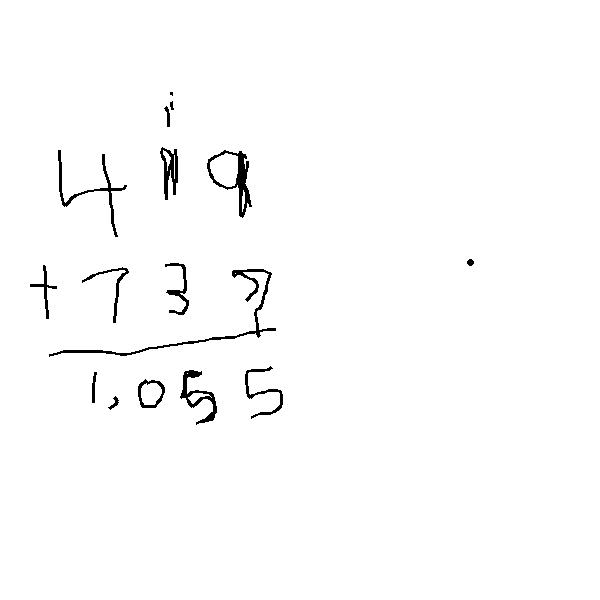 1
4 1 9
+ 7 3 7
1,055